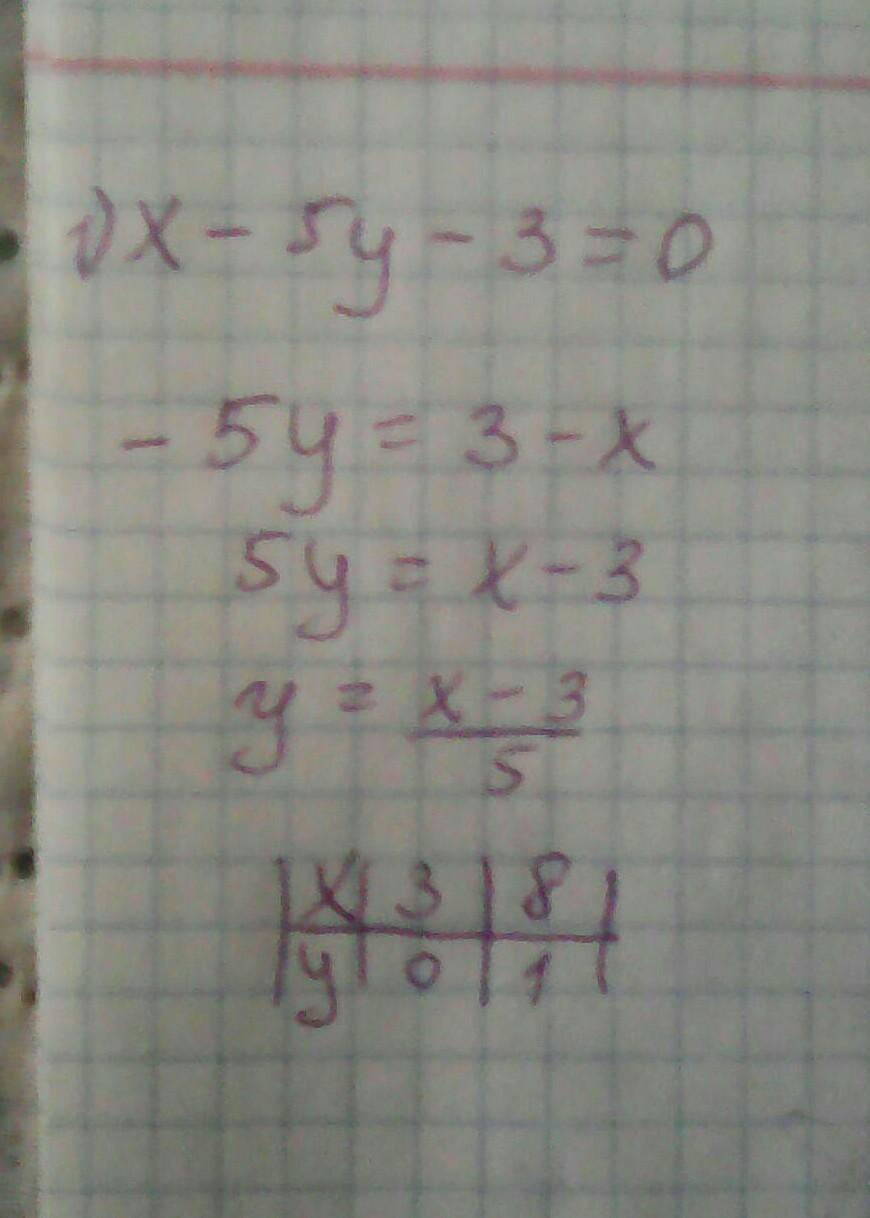 1) x - 5y - 3 = 0
- 5y = 3 - x
5y = x - 3
y = x - 3
5
x 3 8
y 0 1